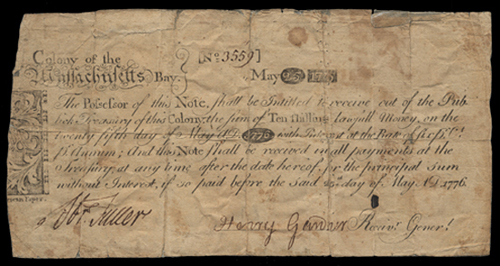 Colony of the [No 3559]
Massachusetts Bay. May 25. 1775
The Possessor of this Note, shall be Intitled to receive out of the Pub-
lick Treasury of this Colony, the sum of Ten Shillings Lawfull Money, on the
twenty fifth day of May AD. 1776 with Interest at the Rate of
P. Annum; And this Note shall be received in all payments at the
Treasury at any time after the date hereof, for the principal Sum
without Interest, if so paid before the said 25. day of May AD 1776.
Henry Gardner Receivr. Generl.